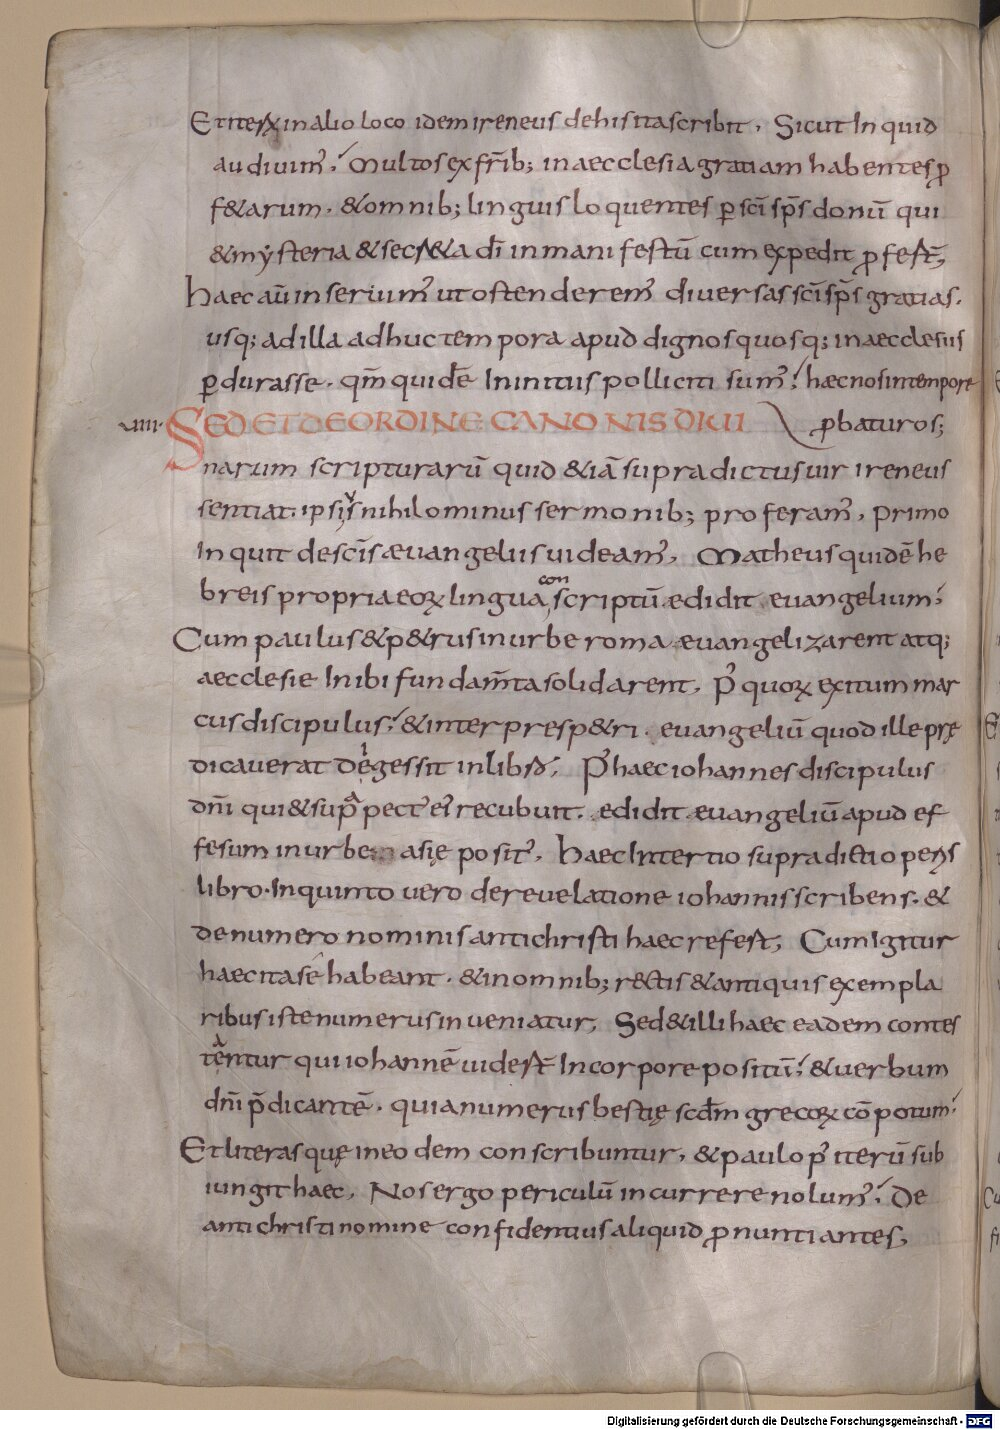 Et iterꝝ in alio loco idem ireneus de his ita scribit. Sicut Inquid
audiuim᾽. Multos ex fr̄ib; in aecclesia gratiam habentes ꝓ
f&arum. & omnib; linguis loquentes ꝑ sc̄i sp̄s donū qui
& mysteria & secr&a dī in manifestū cum expedit ꝓfest̄;
haec aū inseruim᾽ ut ostenderem᾽ diuersas sc̄i sp̄s gratias.
usq; ad illa adhuc tempora apud dignos quosq; in aecclesiis
ꝑdurasse. qm̄ quidē In initiis polliciti sum᾽. hæc nos in tempore
ꝓbaturos;
viiii. SED ET DE ORDINE CANONIS DIUI
narum scripturarū quid & iā supradictus uir ireneus
sentiat. ipsiꝰ nihilominus sermonib; proferam᾽. primo
Inquit de sc̄is æuangeliis uideam᾽. Matheus quidē he
breis propria eoꝝ lingua conscriptū edidit euangelium.
Cum paulus & p&rus in urbe roma æuangelizarent atq;
aecclesie Inibi fundam̄ta solidarent. P᾽ quoꝝ exitum mar
cus discipulus. & interpres p&ri. euangeliū quod ille prę
dicauerat degessit in libro. P᾽ haec iohannes discipulus
dn̄i qui & supra pect᾽ ei᾽ recubuit. edidit æuangeliū apud ef
fesum in urbe asię posit᾽. haec In tertio supradicti operis
libro. In quinto uero de reuelatione iohannis scribens. &
de numero nominis antichristi haec refest; Cum igitur
haec ita se habeant. & in omnib; r&tis & antiquis exempla
ribus iste numerus inueniatur. Sed & illi haec eadem contes
tentur qui iohannē uidest̄ In corpore positū. & uerbum
dn̄i p̄dicantē. quia numerus bestię scdm̄ grecoꝝ cōpotum.
Et literas quę in eodem conscribuntur. & paulo p᾽ iterū sub
iungit haec. Nos ergo periculū incurrere nolum᾽. De
antichristi nomine confidentius aliquid ꝓnuntiantes;
Digitalisierung gefördert durch die Deutsche Forschungsgemeinschaft - DFG